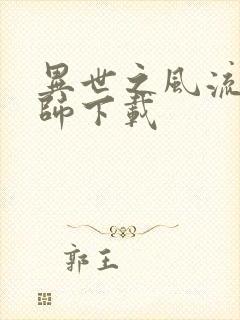 異世之風流
師下載
郭王